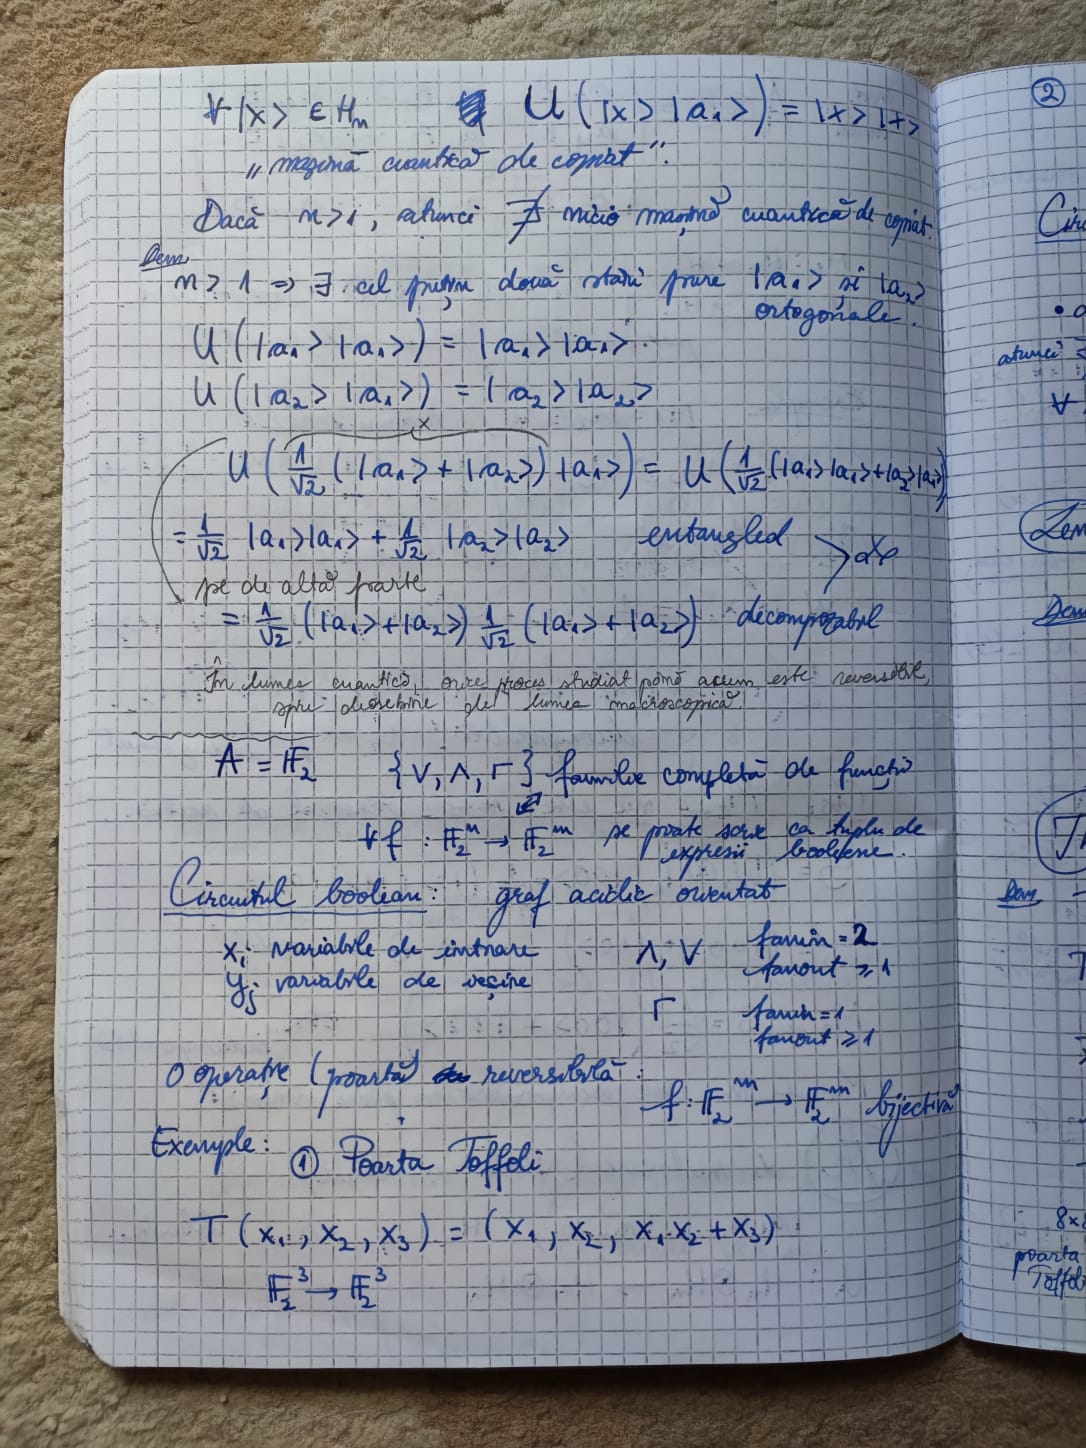 ∀ |x> ∈ Hₙ U(|x> |a₁>) = |x> |x>
„mașină cuantică de copiat".
Dacă n>1, atunci ∄ nicio mașină cuantică de copiat.
Dem
n > 1 => ∃ cel puțin două stări pure |a₁> și |a₂>
ortogonale.
U(|a₁> |a₁>) = |a₁> |a₁>.
U(|a₂> |a₁>) = |a₂> |a₂>
x
U(1/√2 (|a₁> + |a₂>) |a₁>) = U(1/√2 (|a₁> |a₁> + |a₂> |a₁>)
= 1/√2 |a₁>|a₁> + 1/√2 |a₂>|a₂> entangled
pe de altă parte
= 1/√2 (|a₁>+|a₂>) 1/√2 (|a₁> + |a₂>) decompozabil
În lumea cuantică, orice proces studiat până acum este reversibil,
spre deosebire de lumea macroscopică.
A = 𝔽₂ {∨, ∧, ⌐} familie completă de funcții
∀f : 𝔽₂ⁿ → 𝔽₂ᵐ se poate scrie ca tuplu de
expresii booleene.
Circuitul boolean: graf aciclic orientat
xᵢ variabile de intrare ∧, ∨ fanin = 2
yⱼ variabile de ieșire fanout ≥ 1
⌐ fanin = 1
fanout ≥ 1
O operație (poartă) reversibilă:
f: 𝔽₂ᵐ → 𝔽₂ᵐ bijectivă
Exemple: ① Poarta Toffoli
T(x₁, x₂, x₃) = (x₁, x₂, x₁x₂ + x₃)
𝔽₂³ → 𝔽₂³
②
atunci
∀
Dem
8x8
poarta